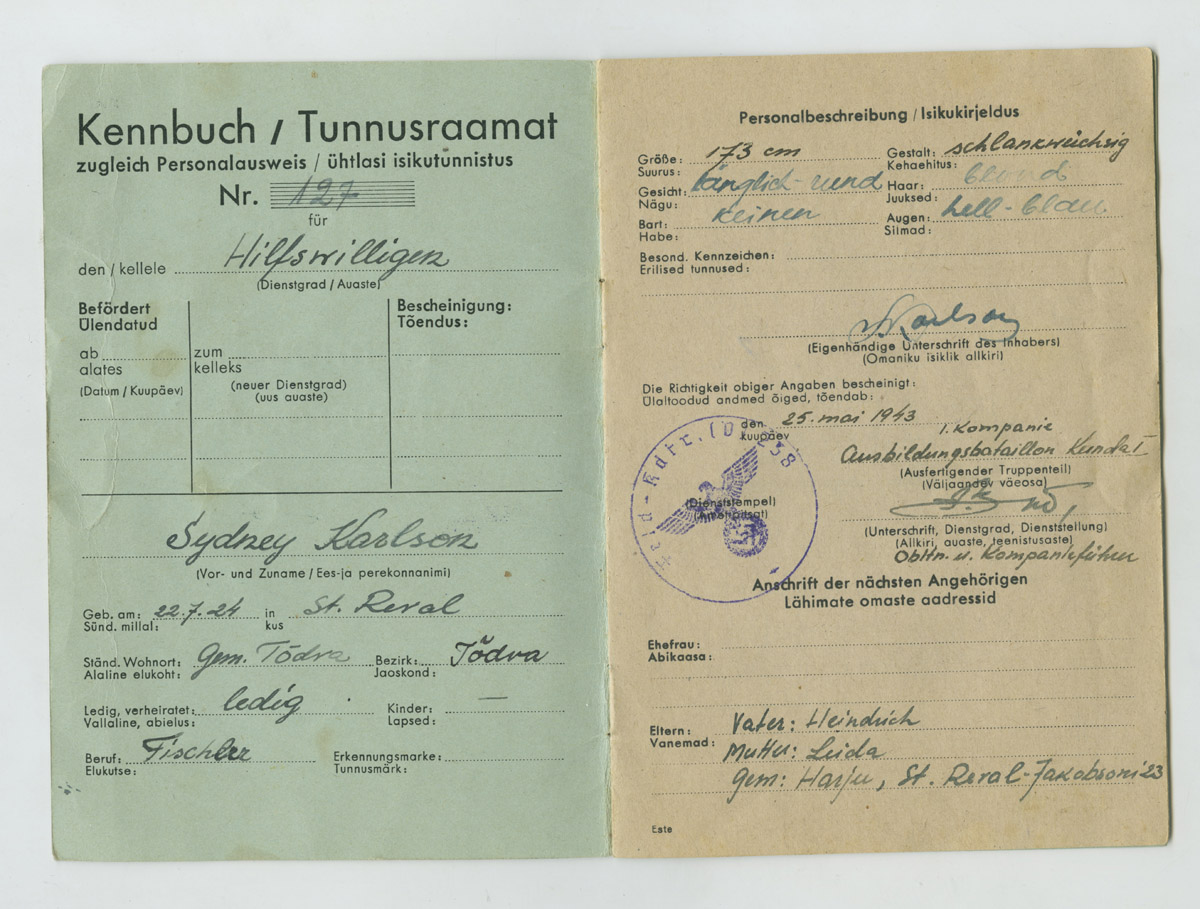 Kennbuch / Tunnusraamat
zugleich Personalausweis / ühtlasi isikutunnistus
Nr. 127
für
den / kellele Hilfswilligen
(Dienstgrad / Auaste)
Befördert
Ülendatud
Bescheinigung:
Tõendus:
ab
alates
zum
kelleks
(Datum / Kuupäev)
(neuer Dienstgrad)
(uus auaste)
Sydney Karlson
(Vor- und Zuname / Ees-ja perekonnanimi)
Geb. am: 22.7.24 in St. Reval
Sünd. millal: kus
Ständ. Wohnort: Gem. Tõdva Bezirk: Tõdva
Alaline elukoht: Jaoskond:
Ledig, verheiratet: ledig Kinder: —
Vallaline, abielus: Lapsed:
Beruf: Fischler Erkennungsmarke:
Elukutse: Tunnusmärk:
Personalbeschreibung / Isikukirjeldus
Größe: 173 cm Gestalt: schlankwüchsig
Suurus: Kehaehitus:
Gesicht: länglich-rund Haar: blond
Nägu: Juuksed:
Bart: keinen Augen: hell-blau
Habe: Silmad:
Besond. Kennzeichen:
Erilised tunnused:
Karlson
(Eigenhändige Unterschrift des Inhabers)
(Omaniku isiklik allkiri)
Die Richtigkeit obiger Angaben bescheinigt:
Ülaltoodud andmed õiged, tõendab:
den 25. mai 1943
kuupäev
1. Kompanie
Ausbildungsbataillon Kunda I
(Ausfertigender Truppenteil)
(Väljaandev väeosa)
(Dienststempel)
(Unterschrift, Dienstgrad, Dienststellung)
(Allkiri, auaste, teenistusaste)
Obltn. u. Kompanieführer
Anschrift der nächsten Angehörigen
Lähimate omaste aadressid
Ehefrau:
Abikaasa:
Eltern: Vater: Heindrich
Vanemad: Mutter: Leida
Gem: Harju, St. Reval-Jakobsoni 23
Este